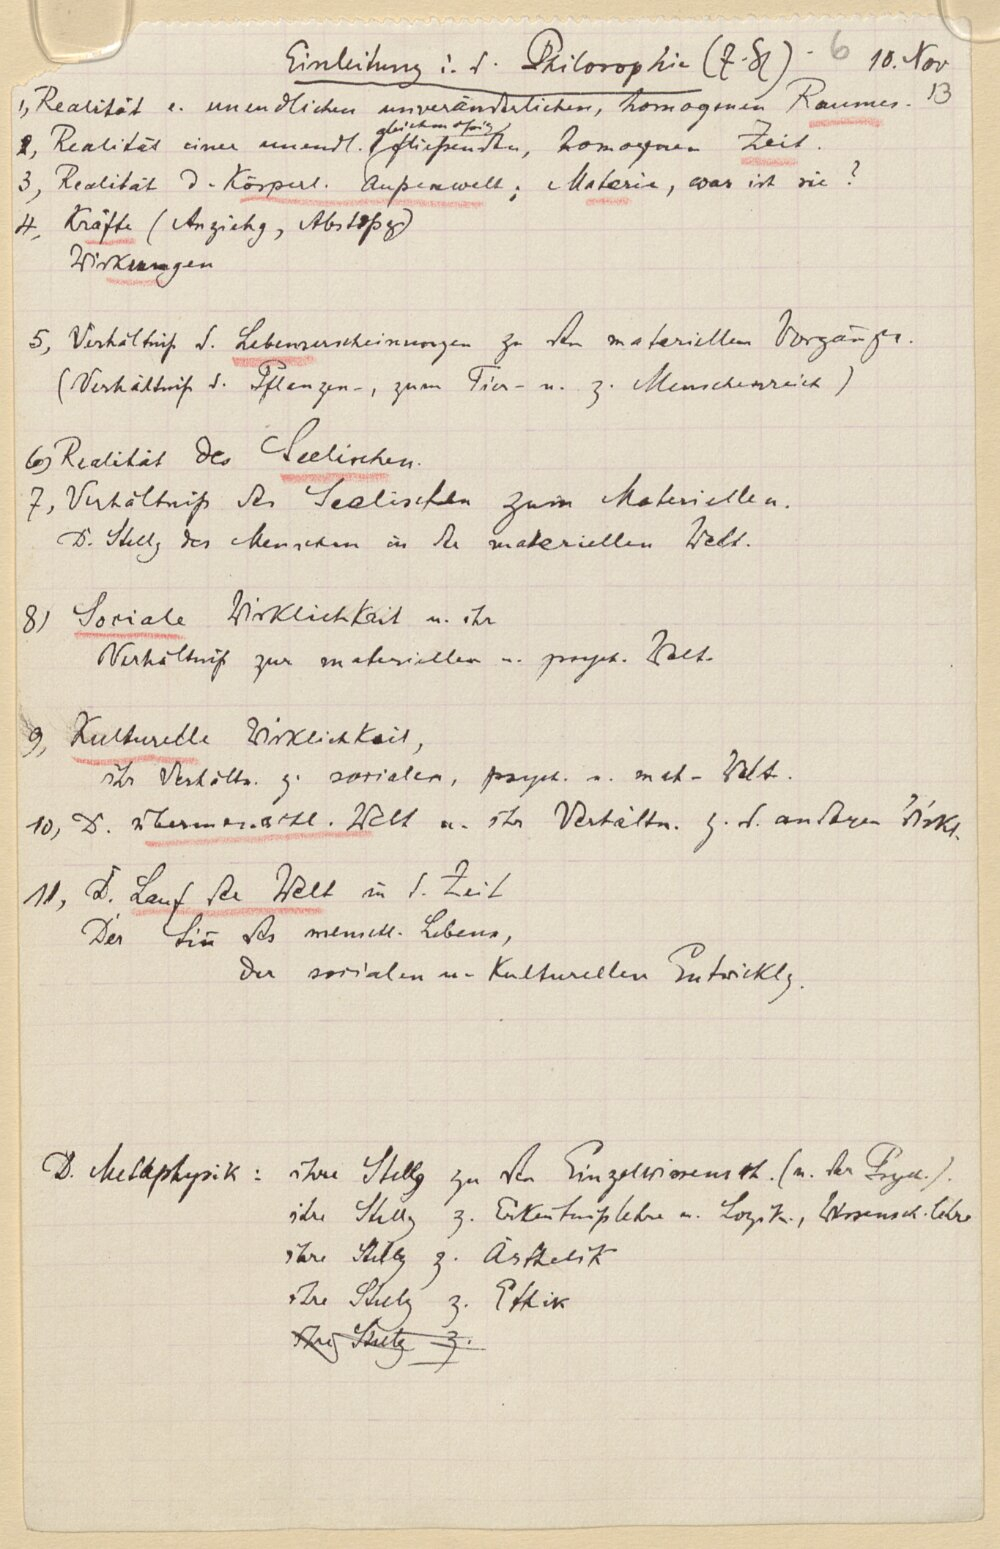 Einleitung i. d. Philosophie (7. St) - 6 10. Nov 13
1, Realität e. unendlichen unveränderlichen, homogenen Raumes.
2, Realität einer unendl. gleichmäßig fließenden, homogenen Zeit.
3, Realität d. Körperl. Außenwelt; Materie, was ist sie?
4, Kräfte (Anziehg, Abstoßg)
Wirkungen
5, Verhältniß d. Lebenserscheinungen zu den materiellen Vorgängen.
(Verhältniß d. Pflanzen-, zum Tier- u. z. Menschenreich)
6) Realität des Seelischen.
7, Verhältniß des Seelischen zum Materiellen.
D. Stellg des Menschen in der materiellen Welt.
8) Sociale Wirklichkeit u. ihr
Verhältniß zur materiellen u. psych. Welt.
9, Kulturelle Wirklichkeit,
ihr Verhältn. z. socialen, psych. u. mat- Welt.
10, D. übermenschl. Welt u. ihr Verhältn. z. d. anderen Wirkl.
11, D. Lauf der Welt in d. Zeit
Der Sin̄ des menschl. Lebens,
der socialen u- kulturellen Entwicklg.
D. Metaphysik: ihre Stellg zu den Einzelwissensch. (u. der Psych.).
ihre Stellg z. Erkentnißlehre u. Logik., Wissensch.lehre
ihre Stellg z. Ästhetik
ihre Stellg z. Ethik
ihre Stellg z.